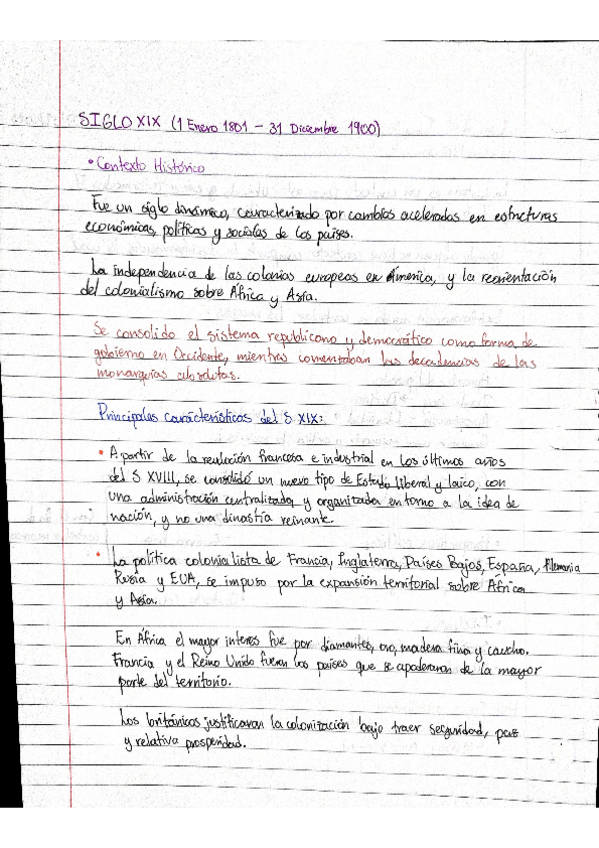 SIGLO XIX (1 Enero 1801 - 31 Diciembre 1900)
• Contexto Histórico
Fue un siglo dinámico, caracterizado por cambios acelerados en estructuras
económicas, políticas y sociales de los países.
La independencia de las colonias europeas en América, y la reorientación
del colonialismo sobre África y Asia.
Se consolido el sistema republicano y democrático como forma de
gobierno en Occidente, mientras comenzaban las decadencias de las
monarquías absolutas.
Principales características del S XIX:
• A partir de la revolución francesa e industrial en los últimos años
del S XVIII, se consolidó un nuevo tipo de Estado liberal y laico, con
una administración centralizada y organizada en torno a la idea de
nación, y no una dinastía reinante.
• La política colonialista de Francia, Inglaterra, Países Bajos, España, Alemania
Rusia y EUA, se impuso por la expansión territorial sobre África
y Asia.
En África el mayor interes fue por diamantes, oro, madera fina y caucho.
Francia y el Reino Unido fueron los países que se apoderaron de la mayor
parte del territorio.
Los británicos justificaron la colonización bajo traer seguridad, paz
y relativa prosperidad.